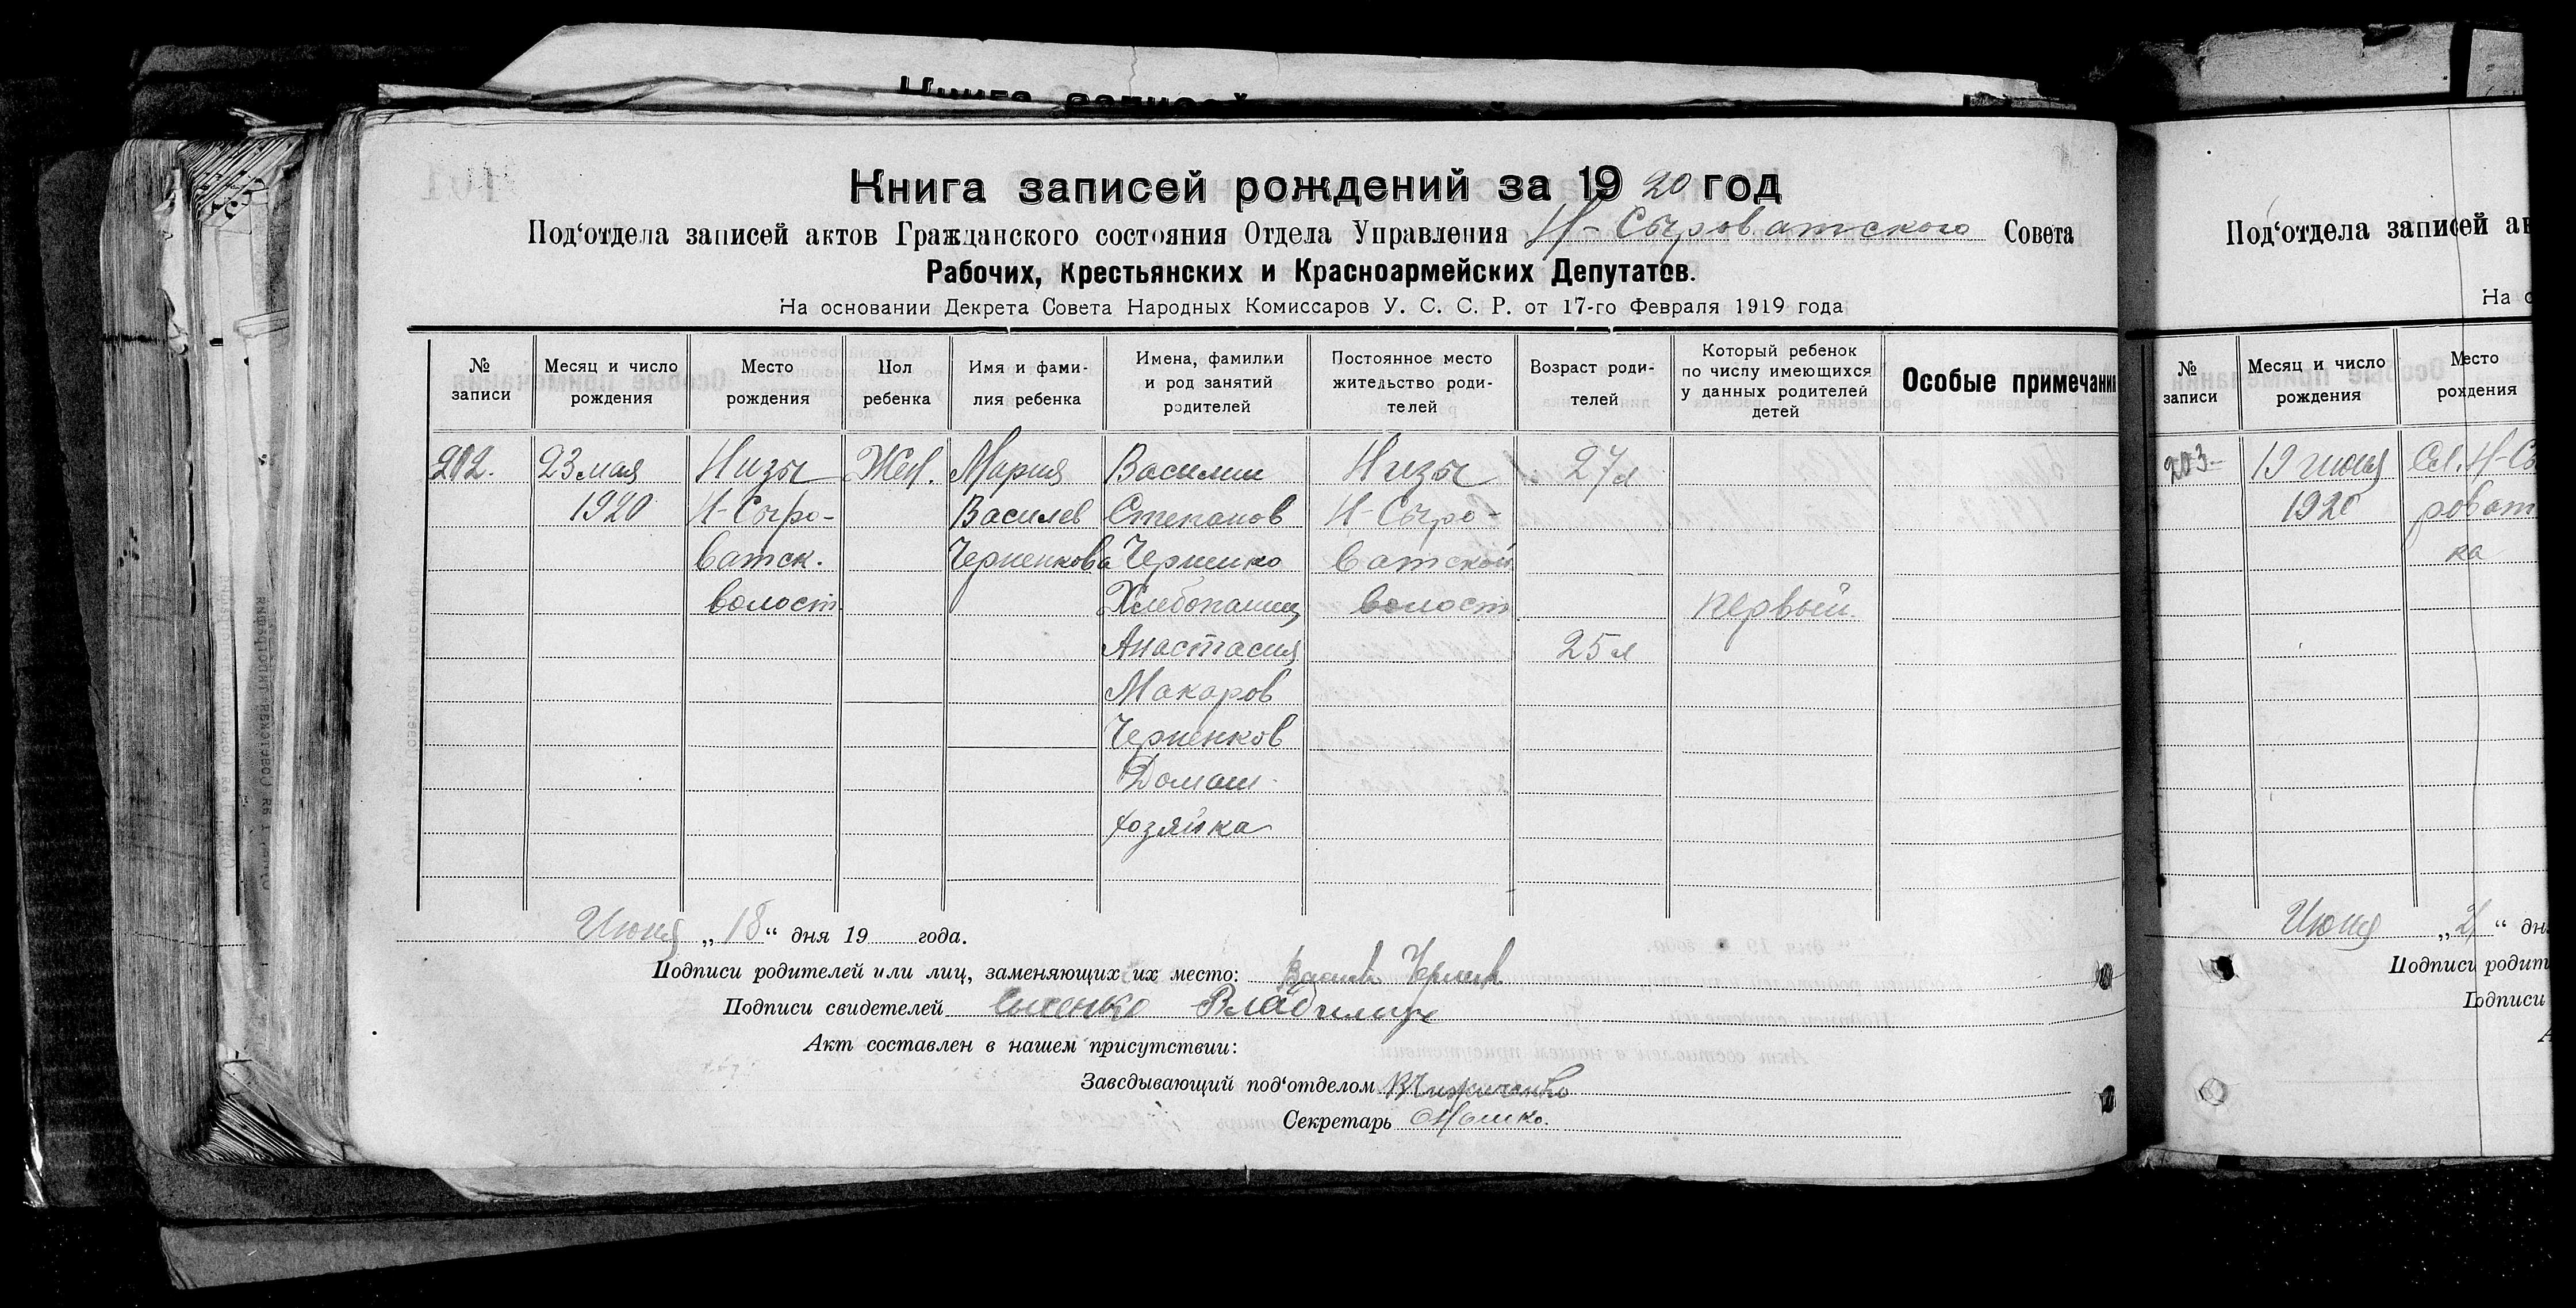 Книга записей
Книга записей рождений за 1920 год
Под‘отдела записей актов Гражданского состояния Отдела Управления Н-Сыроватского Совета
Рабочих, Крестьянских и Красноармейских Депутатов.
На основании Декрета Совета Народных Комиссаров У. С. С. Р. от 17-го Февраля 1919 года
№ записи | Месяц и число рождения | Место рождения | Пол ребенка | Имя и фамилия ребенка | Имена, фамилии и род занятий родителей | Постоянное место жительство родителей | Возраст родителей | Который ребенок по числу имеющихся у данных родителей детей | Особые примечания
202. 23 мая Низы Жен. Мария Василий Низы 27 л
1920 Н-Сыро- Василев Степанов Н-Сыро-
ватск. Черненкова Черненко ватской
волост Хлебопашец волост первый.
Анастасия 25 л
Макаров
Черненков
Домаш.
хозяйка
Июня „18“ дня 19 года.
Подписи родителей или лиц, заменяющих их место:
Подписи свидетелей Владимир
Акт составлен в нашем присутствии:
Заведывающий под‘отделом
Секретарь
Под‘отдела записей ак
На о
№ записи | Месяц и число рождения | Место рождения
203 19 июня Сл. Н-Сы
1920 роват
ка
Июня „2 “ дн
Подписи родит
Подписи
А